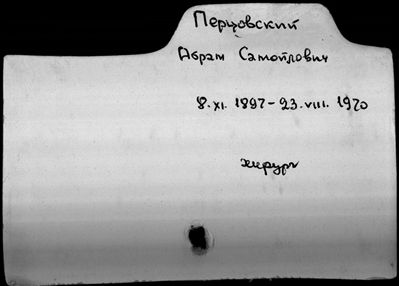 Перцовский
Абрам Самойлович
8.XI. 1897 - 23.VIII. 1970
хирург